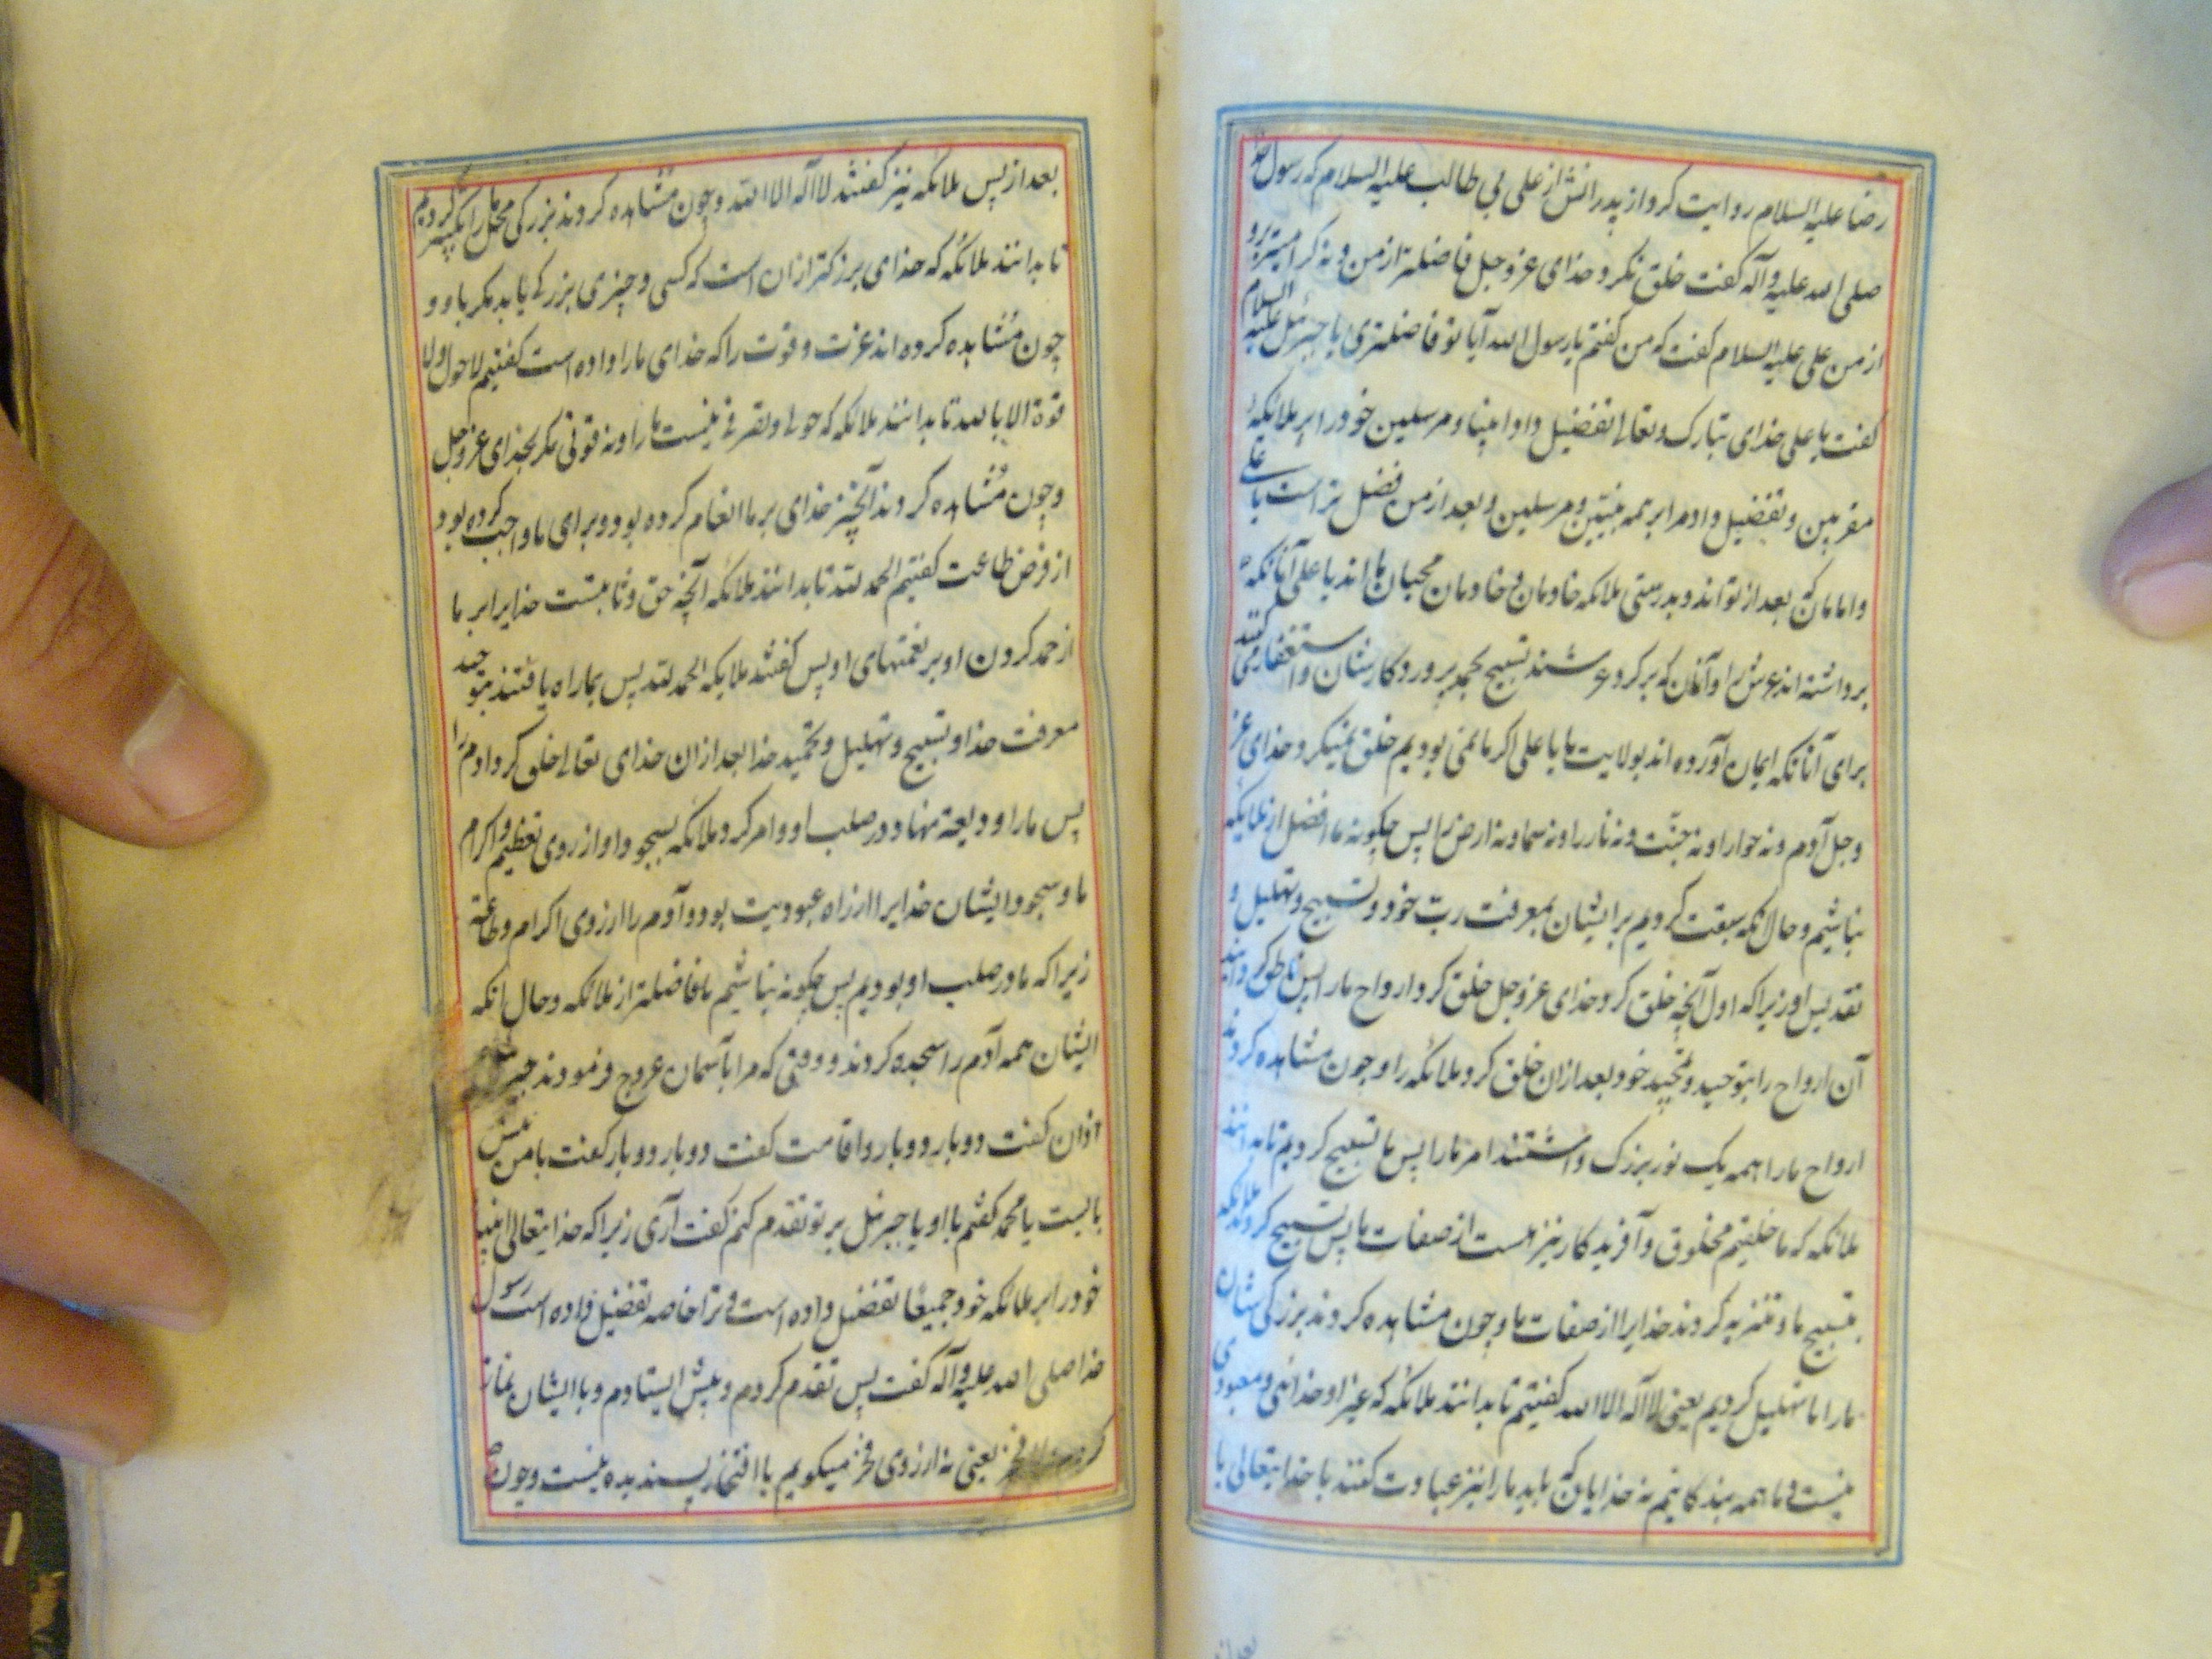 رضا علیه السلام روایت کرد از پدرانش از علی بی طالب علیه السلام که رسول خدا
صلی الله علیه و آله گفت خلق نکرد خدای عز و جل فاضلتر از من و نه کرامیتر برو
از من علی علیه السلام گفت که من گفتم یا رسول الله آیا تو فاضلتری یا جبرئیل علیه السلام
گفت یا علی خدای تبارک و تعالی تفضیل داد انبیا و مرسلین خود را بر ملائکه
مقربین و تفضیل داد مرا بر همه نبیین و مرسلین و بعد از من فضل تر است یا علی
و امامان که بعد از تو اند و بدرستی ملائکه خادمان و خادمان محبان ما اند یا علی آنانکه
برداشته اند عرش را و آنان که بر کرد عرشند تسبیح بحمد پروردکارشان و استغفار می کنند
برای آنانکه ایمان آورده اند بولایت ما یا علی اکر ما نمی بودیم خلق نمیکرد خدای عز
و جل آدم و نه حوا را و نه جنت و نه نار را و نه سما و نه ارض را پس چکونه ما افضل از ملائکه
نباشیم و حال انکه سبقت کردیم بر ایشان بمعرفت رب خود و تسبیح و تهلیل و
تقدیس او زیرا که اول آنچه خلق کرد خدای عز و جل خلق کرد ارواح ما را پس
آن ارواح را بتوحید و تمجید خود بعد از ان خلق کرد ملائکه را و چون مشاهده کردند
ارواح ما را همه یک نور بزرک دانستند امر ما را پس ما تسبیح کردیم تا بدانند
ملائکه که ما خلقیم مخلوق و آفریدکار نیز هست از صفات ما پس تسبیح کردند ملائکه
بتسبیح ما و تنزیه کردند خدایرا از صفات ما و چون مشاهده کردند بزرکی شان
ما را ما تهلیل کردیم یعنی لا اله الا الله گفتیم تا بدانند ملائکه که غیر او خدائی و معبودی
نیست و ما همه بندکانیم نه خدایان که باید ما را نیز عبادت کنند با خدایتعالی یا
بعد از پس ملائکه نیز گفتند لا اله الا الله و چون مشاهده کردند بزرکی محل ما را تکبیر کردیم
تا بدانند ملائکه که خدای بزرکتر از ان است که کسی و چیزی بزرکی یابد مکر با و و
چون مشاهده کرده اند عزت و قوت را که خدای ما را داده است گفتیم لا حول و لا
قوة الا بالله تا بدانند ملائکه که حولی و تصرفی نیست ما را و نه قوتی مکر بخدای عز و جل
و چون مشاهده کردند آنچیز خدای بر ما انعام کرده بود و برای ما واجب کرده بود
از فرض طاعت گفتیم الحمد لله تا بدانند ملائکه آنچه حق و ثابتست خدایرا بر ما
از حمد کردن او بر نعمتهای او پس گفتند ملایکه الحمد لله پس بما راه یافتند بتوحید
معرفت خدا و تسبیح و تهلیل و تحمید خدا بعد از ان خدای تعالی خلق کرد ادم را
پس ما را ودیعة نهاد در صلب او و امر کرد ملائکه بسجود او از روی تعظیم و اکرام
ما و سجود ایشان خدایرا از راه عبودیت بود و آدم را از روی اکرام و طاعة
زیرا که ما در صلب او بودیم پس چکونه نباشیم ما فاضلتر از ملائکه و حال انکه
ایشان همه آدم را سجده کردند و وقتی که مرا بآسمان عروج فرمودند جبرئیل
اذان گفت دو بار دو بار و اقامت گفت دو بار دو بار گفت با من پیش
بایست یا محمد گفتم با او یا جبرئیل بر تو تقدم کنم گفت آری زیرا که خدایتعالی انبیا
خود را بر ملائکه خود جمیعا تفضیل داده است و ترا خاصه تفضیل داده است رسول
خدا صلی الله علیه و آله گفت پس تقدم کردم و پیش ایستادم و با ایشان نماز
کردم و لا فخر یعنی نه از روی فخر میکویم یا افتخار پسندیده نیست و چون